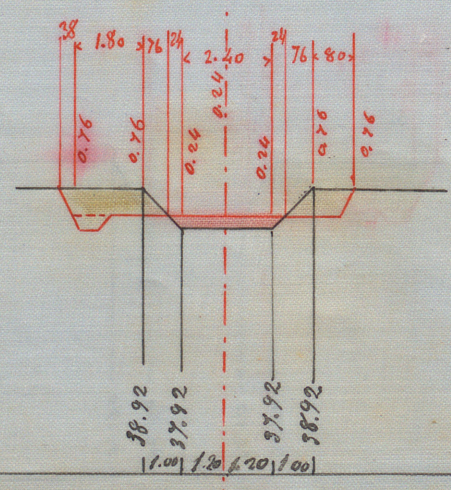 38 1.80 76 24 2.40 24 76 80
0.76 0.76 0.24 0.24 0.24 0.76 0.76
38.92 37.92 37.92 38.92
1.00 1.20 1.20 1.00